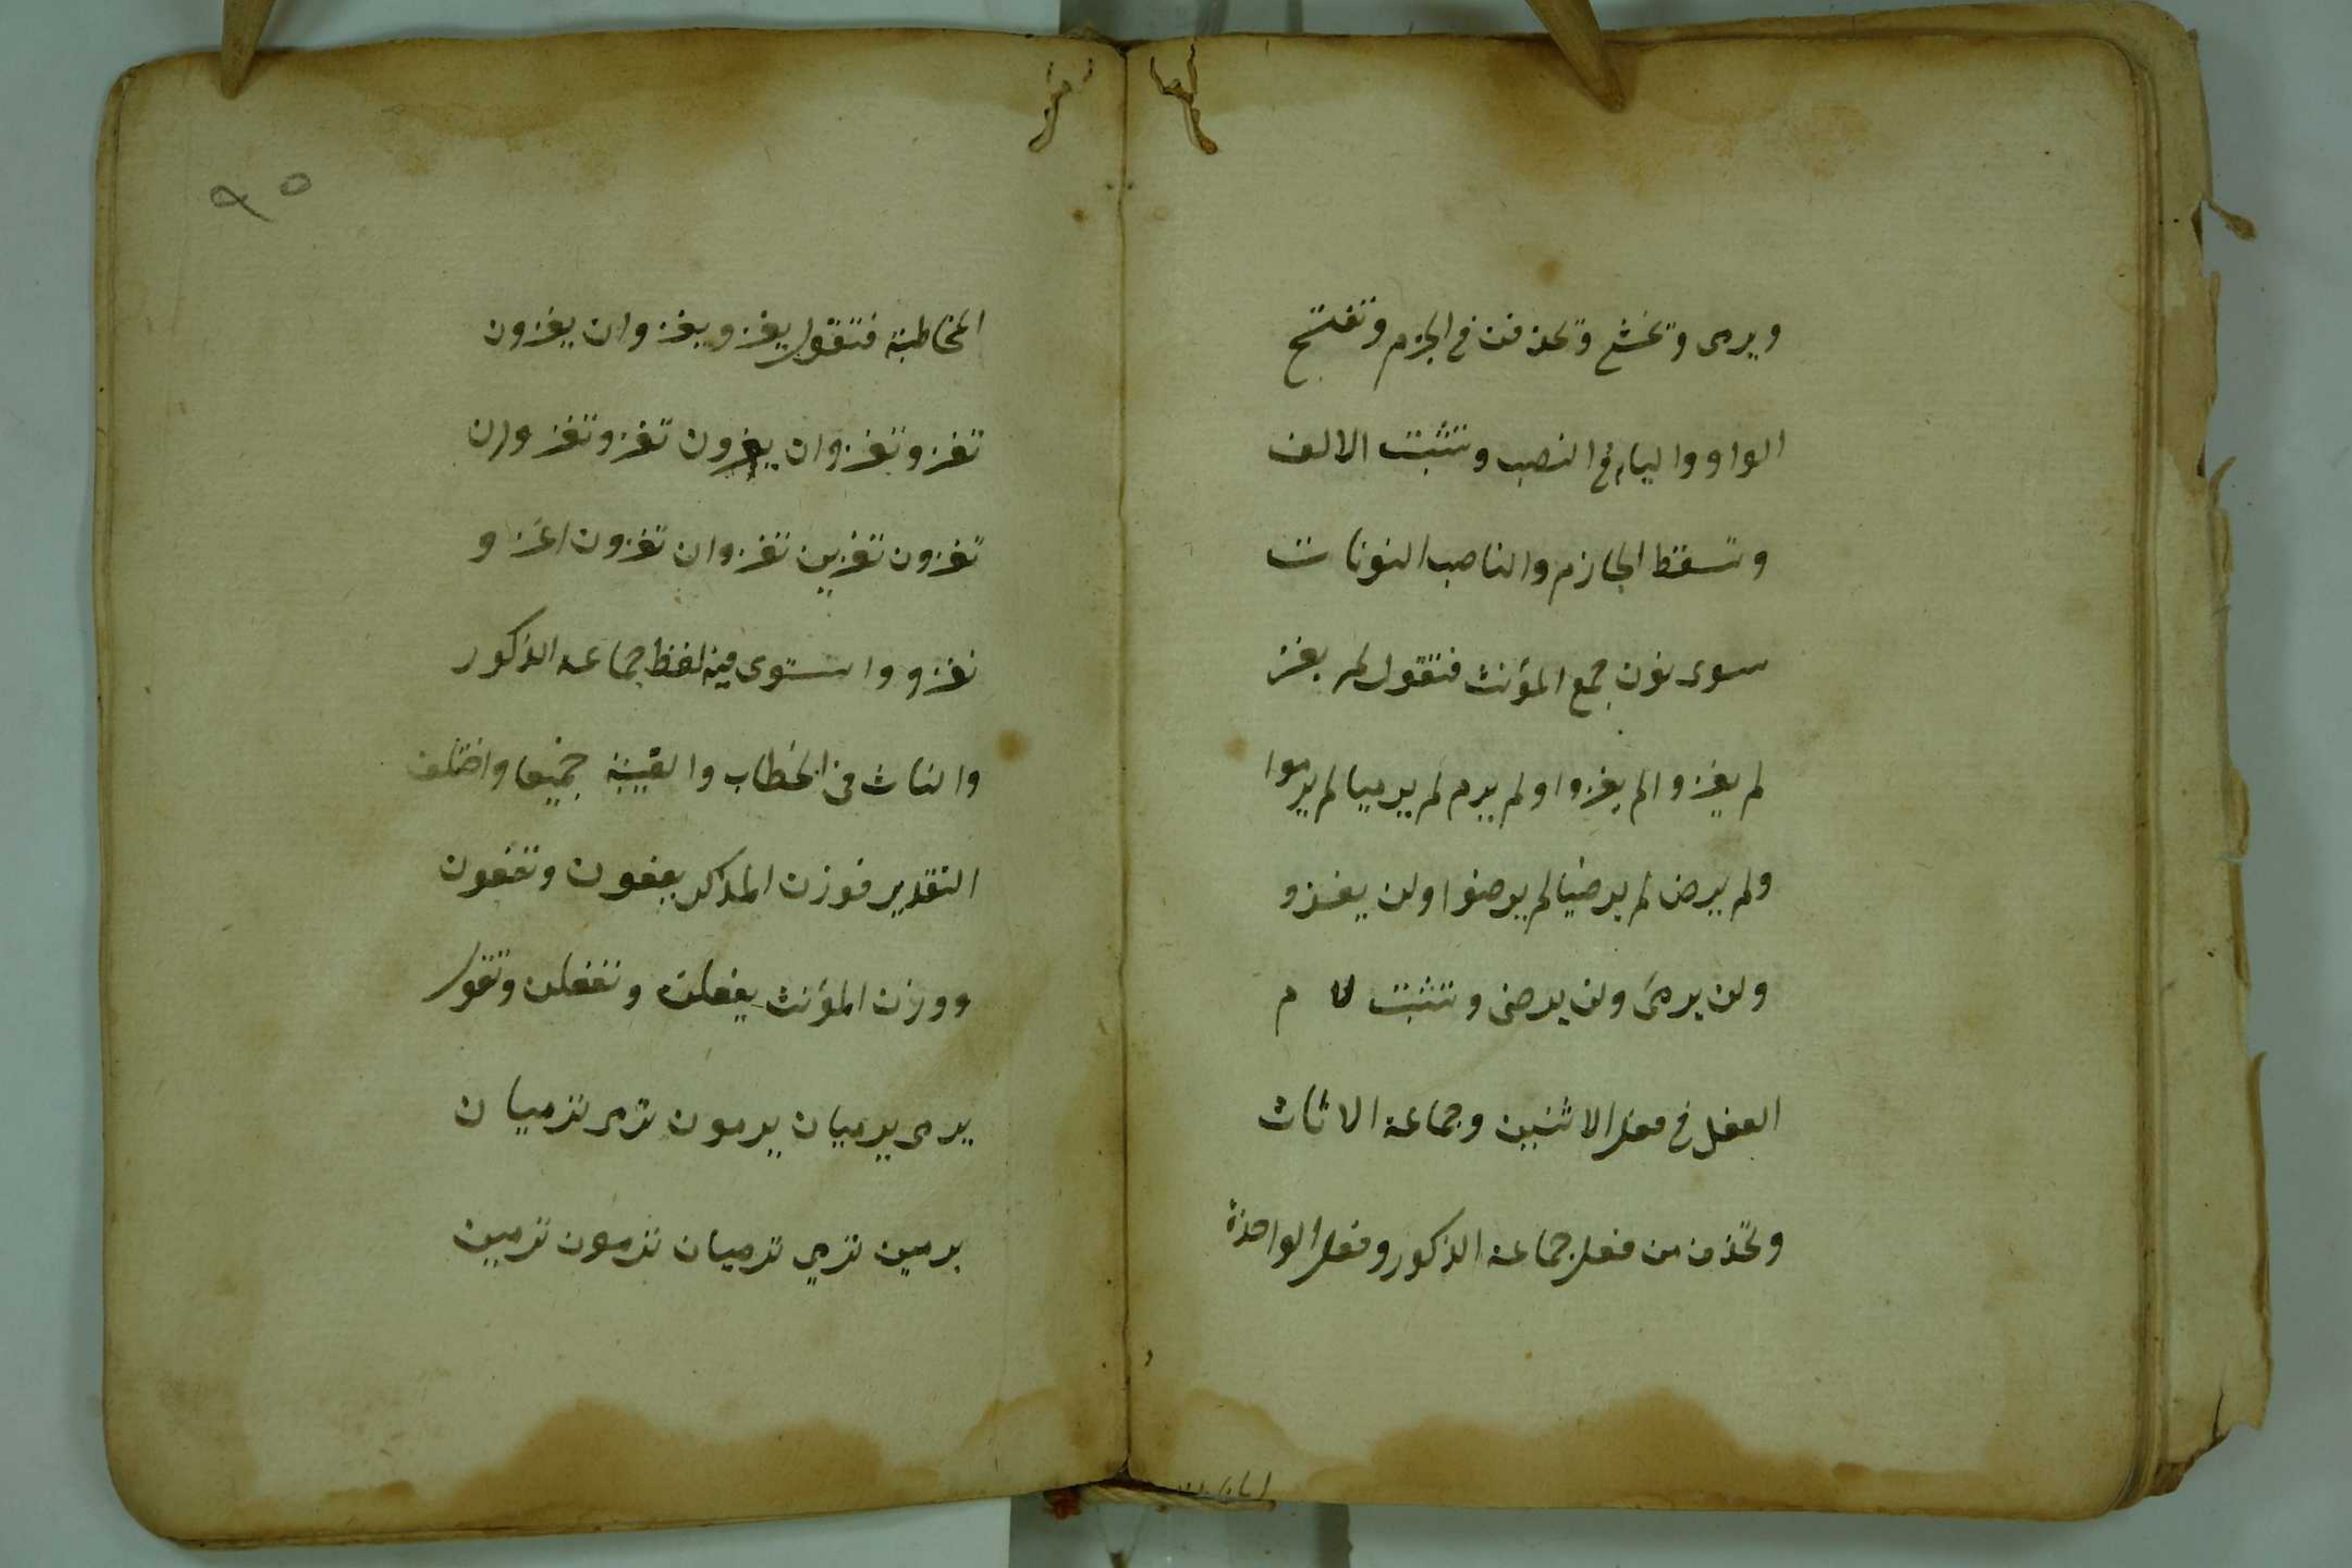 ويرمى وتخشع وتحذفن في الجزم وتفتح
الواو والياء في النصب وتثبت الالف
وتسقط الجازم والناصب النونات
سوى نون جمع المؤنث فتقول لم يغز
لم يغزوا لم يغزوا ولم يرم لم يرميا لم يرموا
ولم يرض لم يرضيا لم يرضوا ولن يغزو
ولن يرمى ولن يرضى وتثبت لا م
الفعل في فعل الاثنين وجماعة الاناث
وتحذف من فعل جماعة الذكور وفعل الواحدة
٩٥
المخاطبة فتقول يغزو يغزوان يغزون
تغزو تغزوان يغزون تغزو تغزوان
تغزون تغزين تغزوان تغزون اغزو
نغزو واستوى فيه لفظ جماعة الذكور
والناث في الخطاب والغيبة جميعا واختلف
التقدير فوزن المذكر يفعون وتفعون
ووزن المؤنث يفعلن وتفعلن وتقول
يرمى يرميان يرمون ترمى ترميان
يرمين ترمي ترميان ترمون ترمين